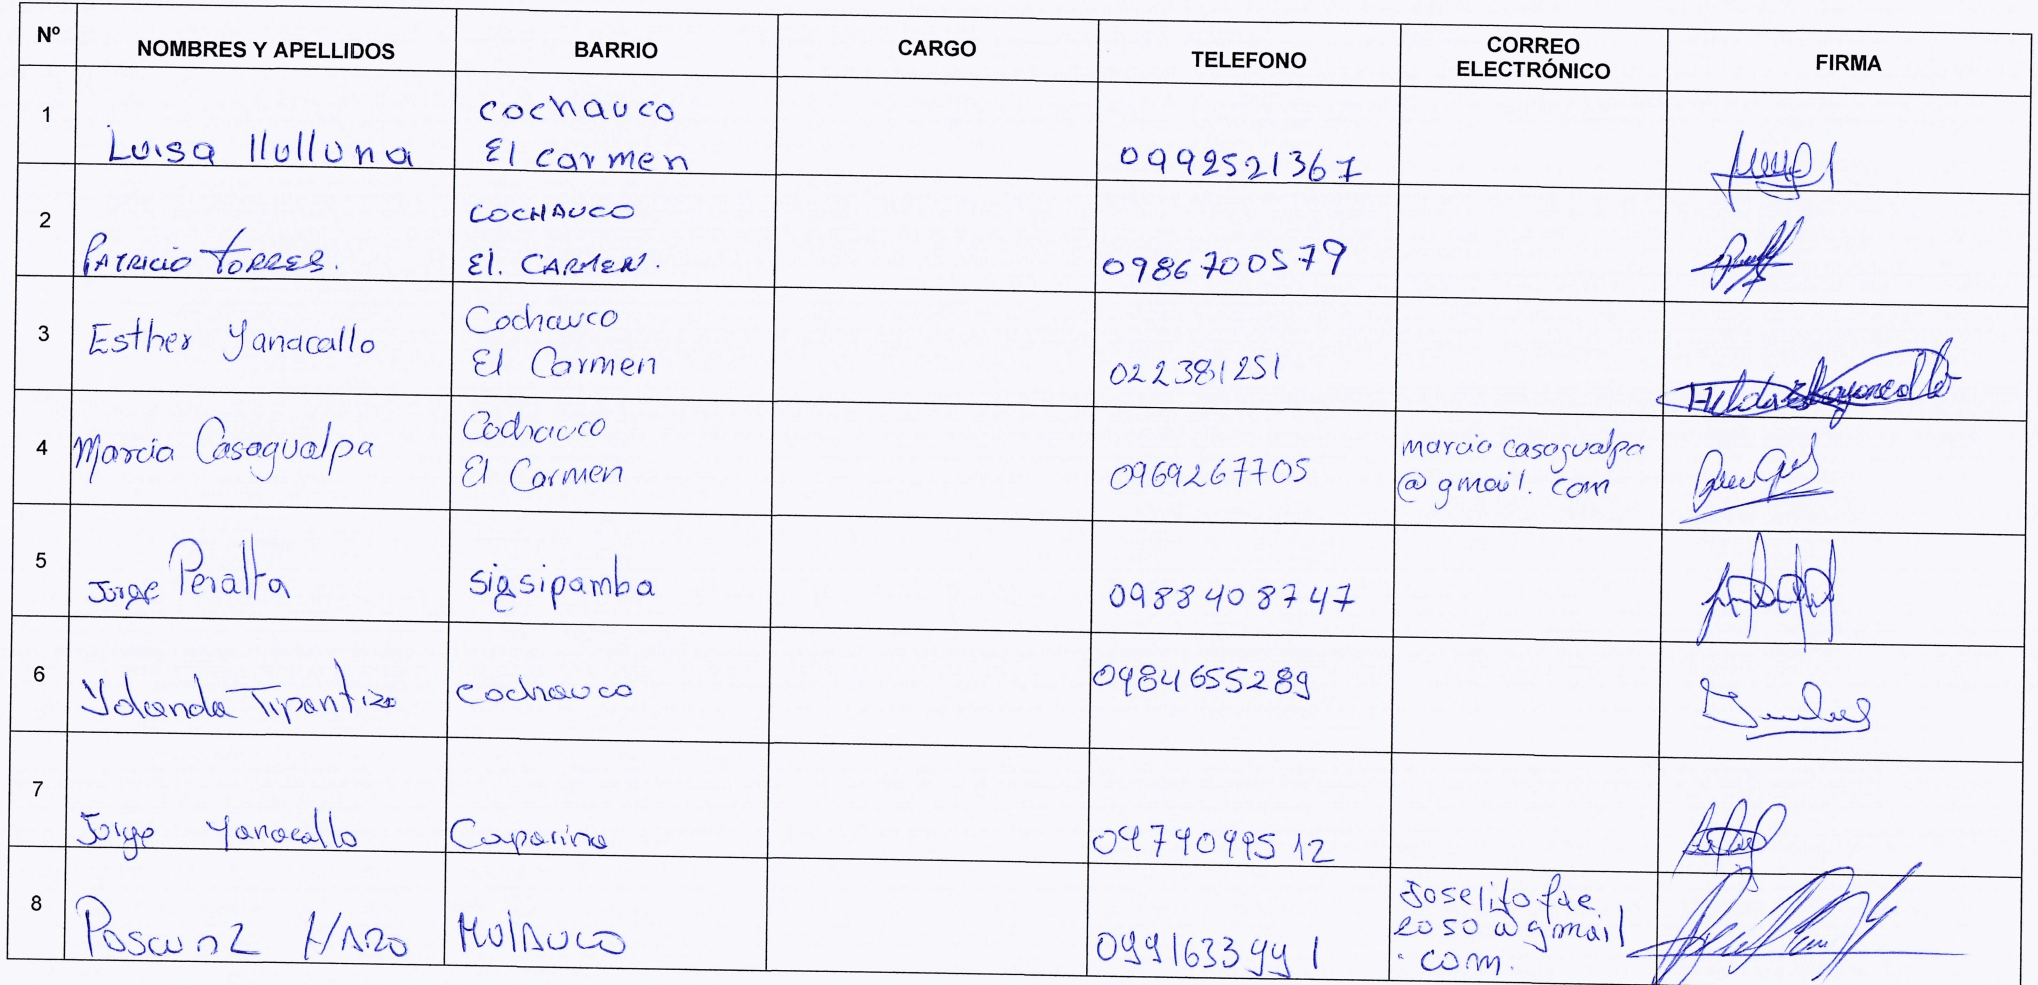 Nº NOMBRES Y APELLIDOS BARRIO CARGO TELEFONO CORREO ELECTRÓNICO FIRMA
1
Luisa Llulluna
cochauco
El carmen
0992521367
2
PATRICIO TORRES.
COCHAUCO
El. CARMEN.
0986700579
3
Esther Yanacallo
Cochauco
El Carmen
022381251
4
Marcia Casagualpa
Cochauco
El Carmen
0969267705
marcia casagualpa
@gmail.com
5
Jorge Peralta
sigsipamba
0988408747
6
Yolanda Tipantiza
cochauco
0984655289
7
Jorge Yanacallo
Caparina
8
HARO
MULAUCO
Joselito fae
2050@gmail
.com.